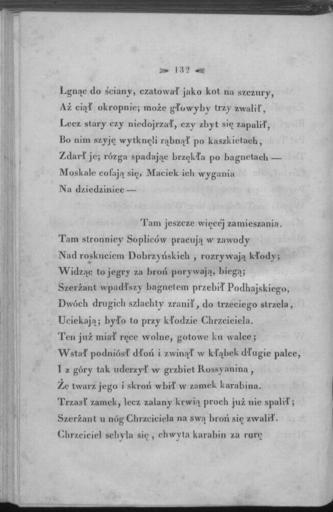 132
Lgnąc do ściany, czatował jako kot na szczury,
Aż ciął okropnie; może głowyby trzy zwalił,
Lecz stary czy niedojrzał, czy zbyt się zapalił,
Bo nim szyję wytknęli rąbnął po kaszkietach,
Zdarł je; rózga spadając brzękła po bagnetach —
Moskale cofają się, Maciek ich wygania
Na dziedziniec —
Tam jeszcze więcéj zamieszania.
Tam stronnicy Sopliców pracują w zawody
Nad roskuciem Dobrzyńskich, rozrywają kłody;
Widząc to jegry za broń porywają, biegą;
Serżant wpadłszy bagnetem przebił Podhajskiego,
Dwóch drugich szlachty zranił, do trzeciego strzela,
Uciekają; było to przy kłodzie Chrzciciela.
Ten już miał ręce wolne, gotowe ku walce;
Wstał podniósł dłoń i zwinął w kłąbek długie palce,
I z góry tak uderzył w grzbiet Rossyanina,
Że twarz jego i skroń wbił w zamek karabina.
Trzasł zamek, lecz zalany krwią proch już nie spalił;
Serżant u nóg Chrzciciela na swą broń się zwalił.
Chrzciciel schyla się, chwyta karabin za rurę